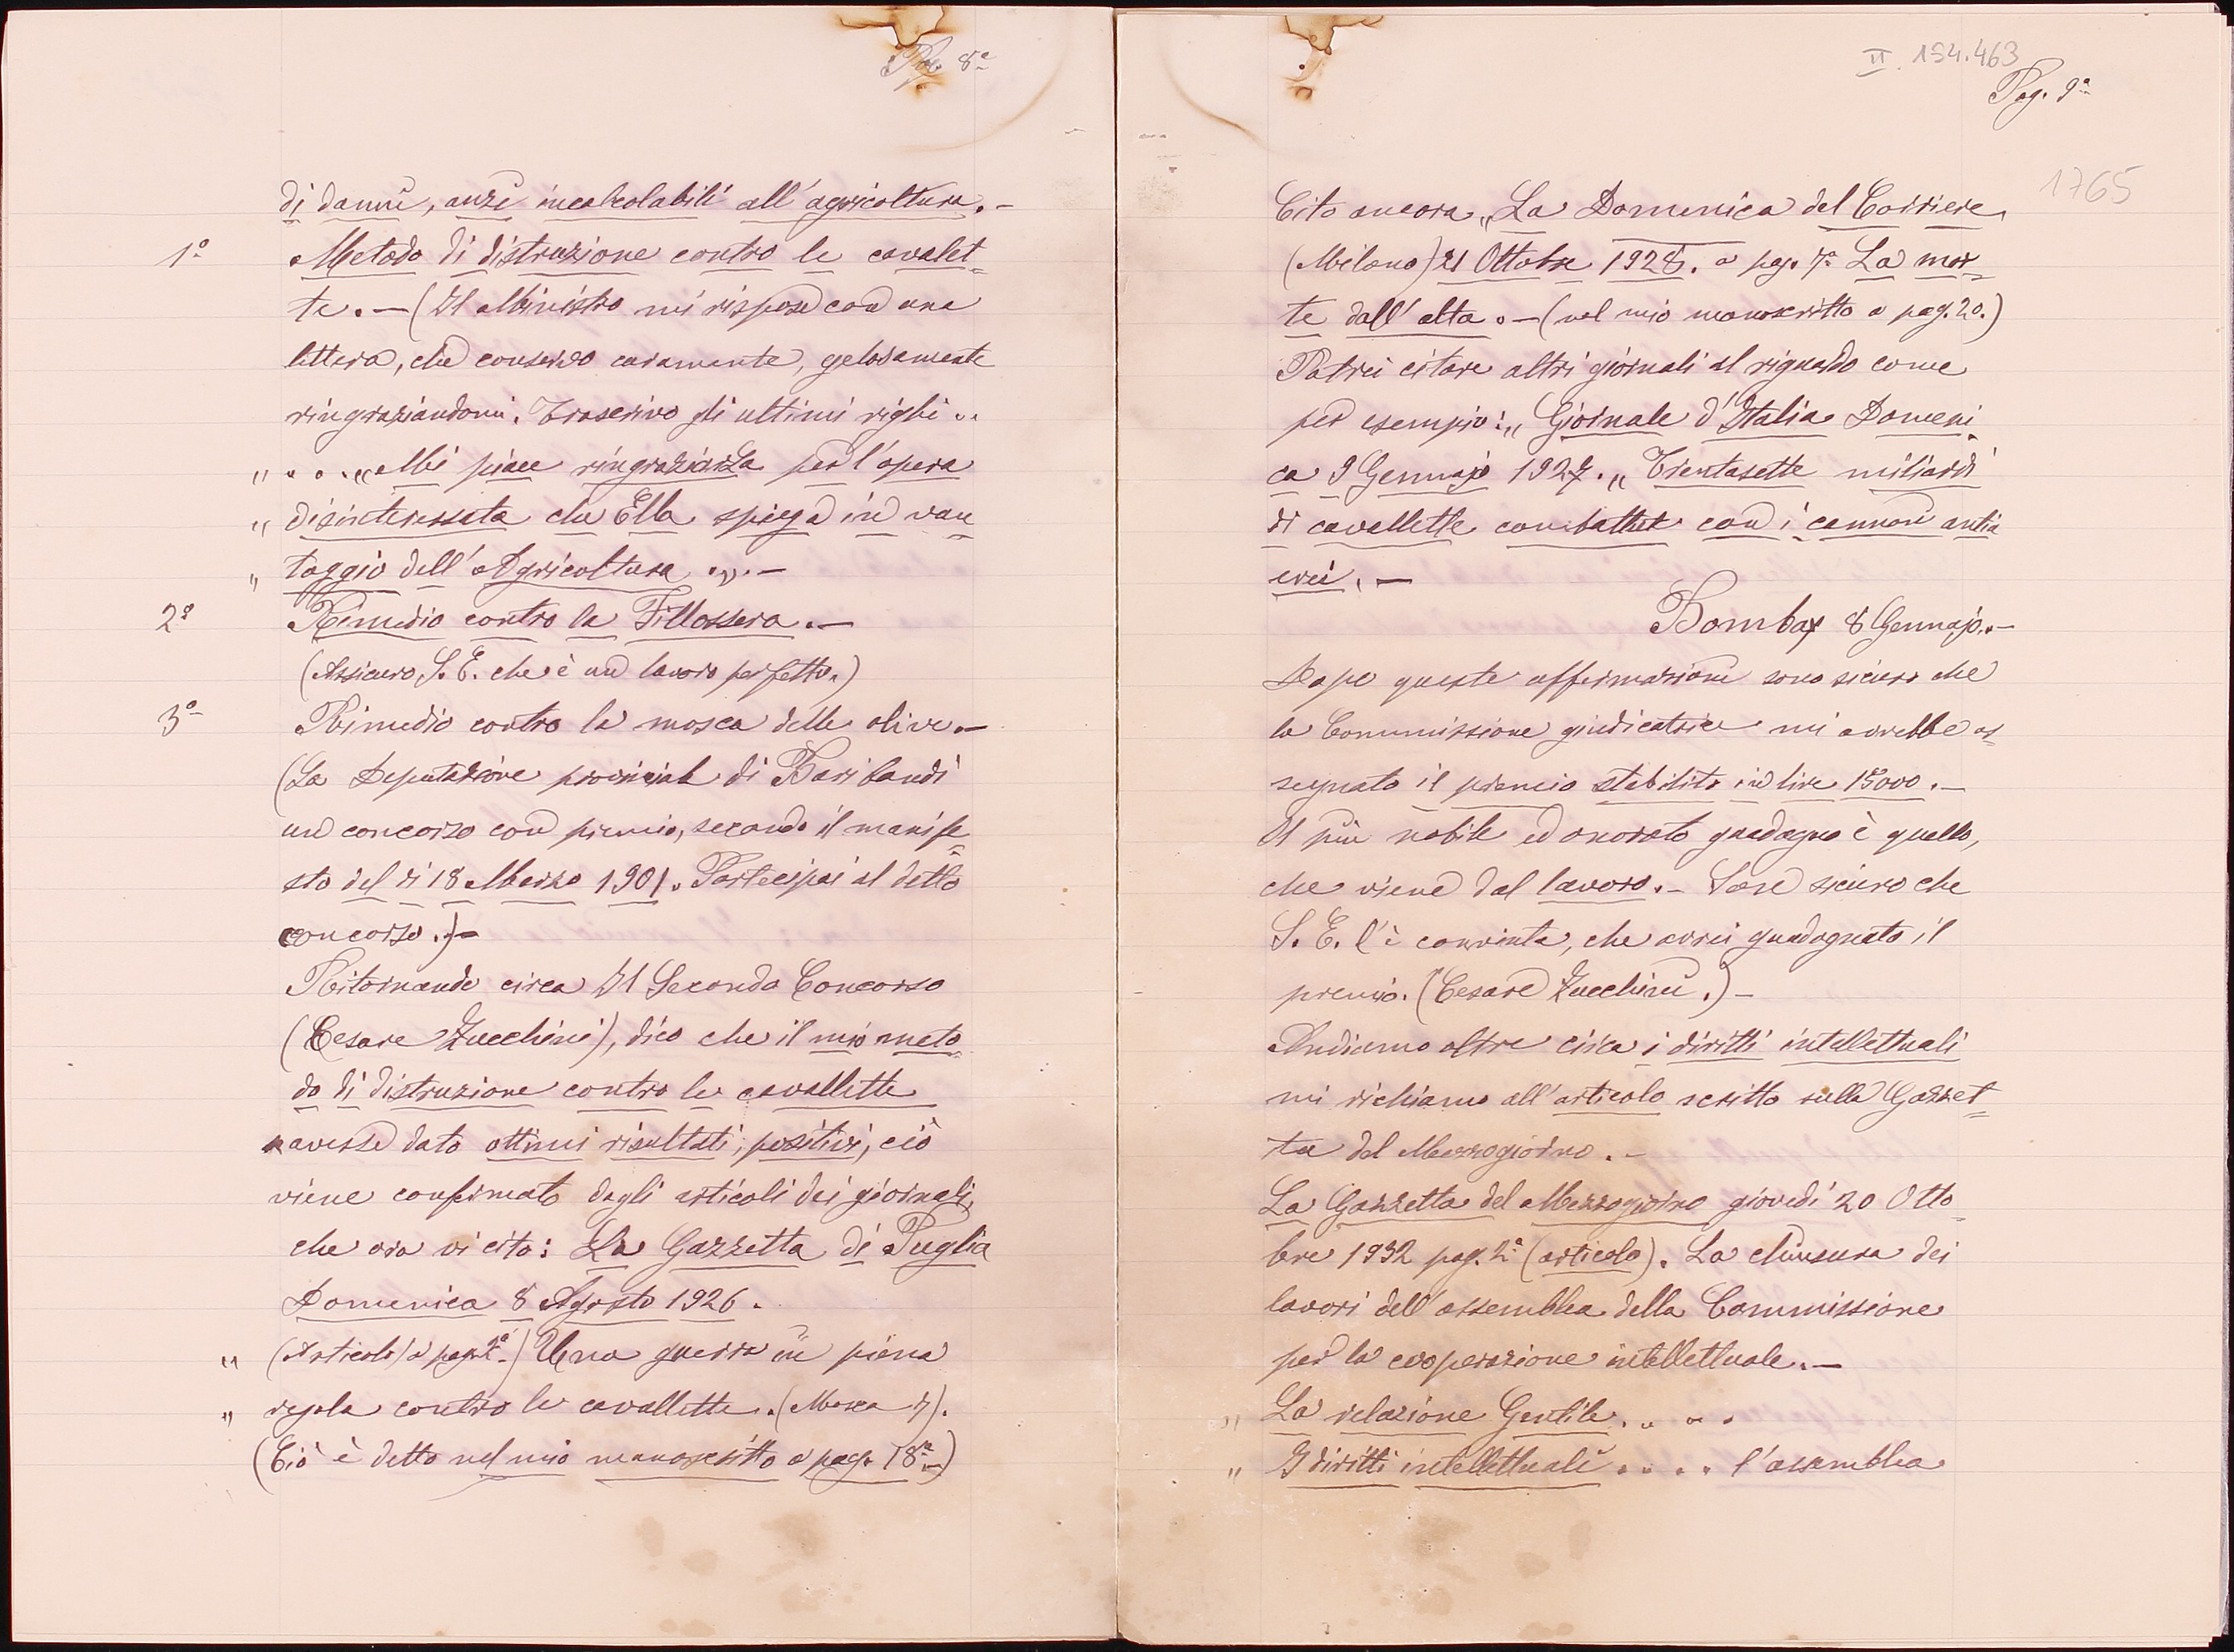 Pag. 8ª
di danni, anzi incalcolabili all'agricoltura.-
1º Metodo di distruzione contro le cavalet-
te.-(Il Ministro mi rispose con una
lettera, che conservo caramente, gelosamente
ringraziandomi. Trascrivo gli ultimi righi..
"....„Mi piace ringraziarLa per l'opera
"disinteressata che Ella spiega in van
"taggio dell'Agricoltura...-
2º Rimedio contro la Fillossera.-
(Assicuro S.E. che è un lavoro perfetto.)
3º Rimedio contro la mosca delle olive.-
(La Deputazione provinciale di Bari bandì
un concorso con premio, secondo il manife
sto del dì 18 Marzo 1901. Partecipai al detto
concorso.)-
Ritornando circa Il Secondo Concorso
(Cesare Zucchini), dico che il mio meto
do di distruzione contro le cavallette
avesse dato ottimi risultati, positivi, ciò
viene confermato dagli articoli dei giornali,
che ora vi cito: La Gazzetta di Puglia
Domenica 8 Agosto 1926.
" (Articolo) a pag. 2ª) Una guerra in piena
" regola contro le cavallette. (Mosca 7).
(Ciò è detto nel mio manoscritto a pag. 18ª-)
II. 154.463
Pag. 9ª
1765
Cito ancora „La Domenica del Corriere„
(Milano) 21 Ottobre 1928. a pag. 7ª La mor-
te dall'alto.-(nel mio manoscritto a pag. 20.)
Potrei citare altri giornali al riguardo come
per esempio: „Giornale d'Italia Domeni
ca 9 Gennajo 1927. „Trentasette miliardi
di cavallette combattute con i cannoni antia
erei.-
Bombay 8 Gennajo.-
Dopo queste affermazioni sono sicuro che
la Commissione giudicatrice mi avrebbe as-
segnato il premio stabilito in lire 15000.-
Il più nobile ed onorato guadagno è quello,
che viene dal lavoro.- Sono sicuro che
S.E. l'è convinta, che avrei guadagnato il
premio. (Cesare Zucchini.)-
Andiamo oltre circa i diritti intellettuali
mi richiamo all'articolo scritto sulla Gazzet-
ta del Mezzogiorno.-
La Gazzetta del Mezzogiorno giovedì 20 Otto
bre 1932 pag. 2ª (articolo). La chiusura dei
lavori dell'assemblea della Commissione
per la cooperazione intellettuale.-
" La relazione Gentile....
" I diritti intellettuali.... l'assemblea